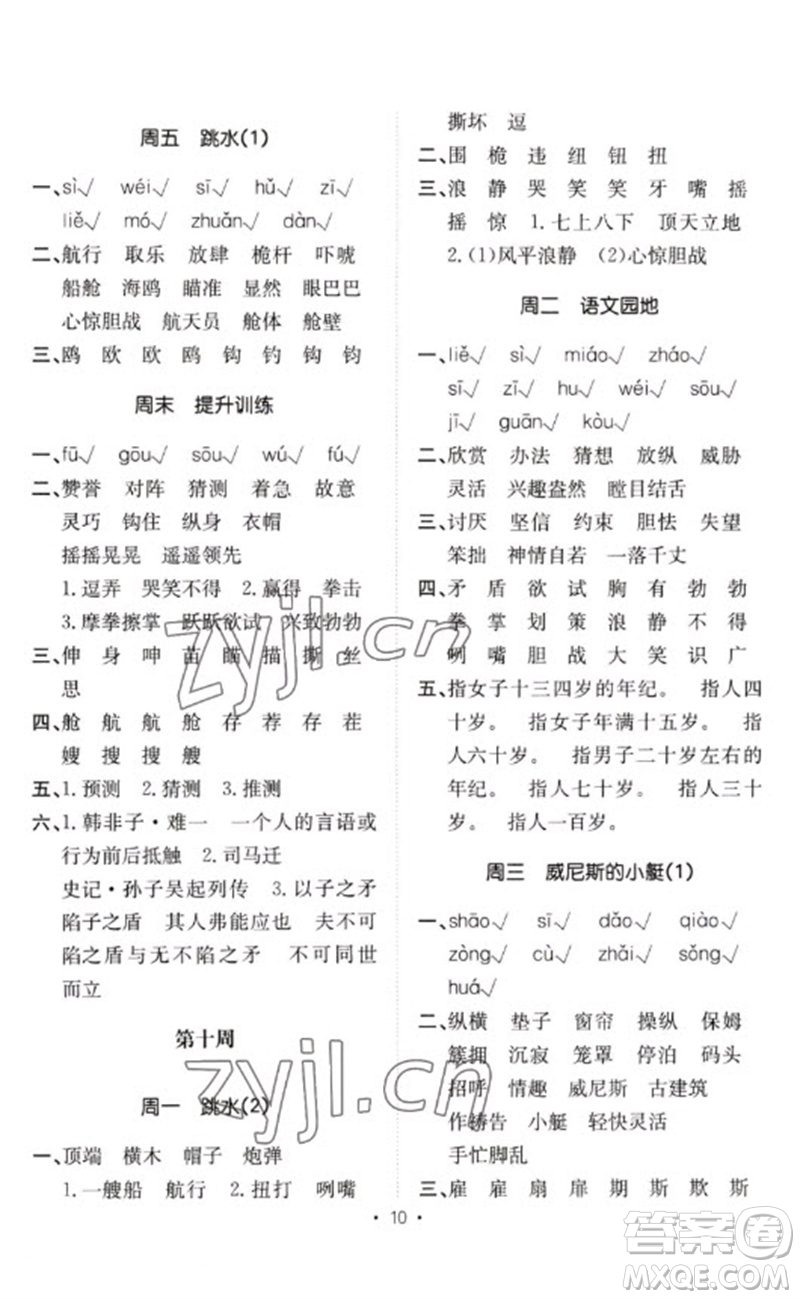 周五 跳水(1)
一、sì√ wéi√ sī√ hǔ√ zī√
liě√ mó√ zhuǎn√ dàn√
二、航行 取乐 放肆 桅杆 吓唬
船舱 海鸥 瞄准 显然 眼巴巴
心惊胆战 航天员 舱体 舱壁
三、鸥 欧 欧 鸥 钩 钓 钩 钧
周末 提升训练
一、fū√ gōu√ sōu√ wú√ fú√
二、赞誉 对阵 猜测 着急 故意
灵巧 钩住 纵身 衣帽
摇摇晃晃 遥遥领先
1.逗弄 哭笑不得 2.赢得 拳击
3.摩拳擦掌 跃跃欲试 兴致勃勃
三、伸 身 呻 苗 瞄 描 撕 丝
思
四、舱 航 航 舱 存 荐 存 茬
嫂 搜 搜 艘
五、1.预测 2.猜测 3.推测
六、1.韩非子·难一 一个人的言语或
行为前后抵触 2.司马迁
史记·孙子吴起列传 3.以子之矛
陷子之盾 其人弗能应也 夫不可
陷之盾与无不陷之矛 不可同世
而立
第十周
周一 跳水(2)
一、顶端 横木 帽子 炮弹
1.一艘船 航行 2.扭打 咧嘴
撕坏 逗
二、围 桅 违 纽 钮 扭
三、浪 静 哭 笑 笑 牙 嘴 摇
摇 惊 1.七上八下 顶天立地
2.(1)风平浪静 (2)心惊胆战
周二 语文园地
一、liě√ sì√ miáo√ zháo√
sī√ zī√ hu√ wéi√ sōu√
jī√ guān√ kòu√
二、欣赏 办法 猜想 放纵 威胁
灵活 兴趣盎然 瞠目结舌
三、讨厌 坚信 约束 胆怯 失望
笨拙 神情自若 一落千丈
四、矛 盾 欲 试 胸 有 勃 勃
拳 掌 划 策 浪 静 不 得
咧 嘴 胆 战 大 笑 识 广
五、指女子十三四岁的年纪。 指人四
十岁。 指女子年满十五岁。 指
人六十岁。 指男子二十岁左右的
年纪。 指人七十岁。 指人三十
岁。 指人一百岁。
周三 威尼斯的小艇(1)
一、shāo√ sī√ dǎo√ qiào√
zòng√ cù√ zhǎi√ sǒng√
huá√
二、纵横 垫子 窗帘 操纵 保姆
簇拥 沉寂 笼罩 停泊 码头
招呼 情趣 威尼斯 古建筑
作祷告 小艇 轻快灵活
手忙脚乱
三、雇 雇 扇 扉 期 斯 欺 斯
·10·
zyjl.cn
zyjl.cn
答案卷
MXQE.COM